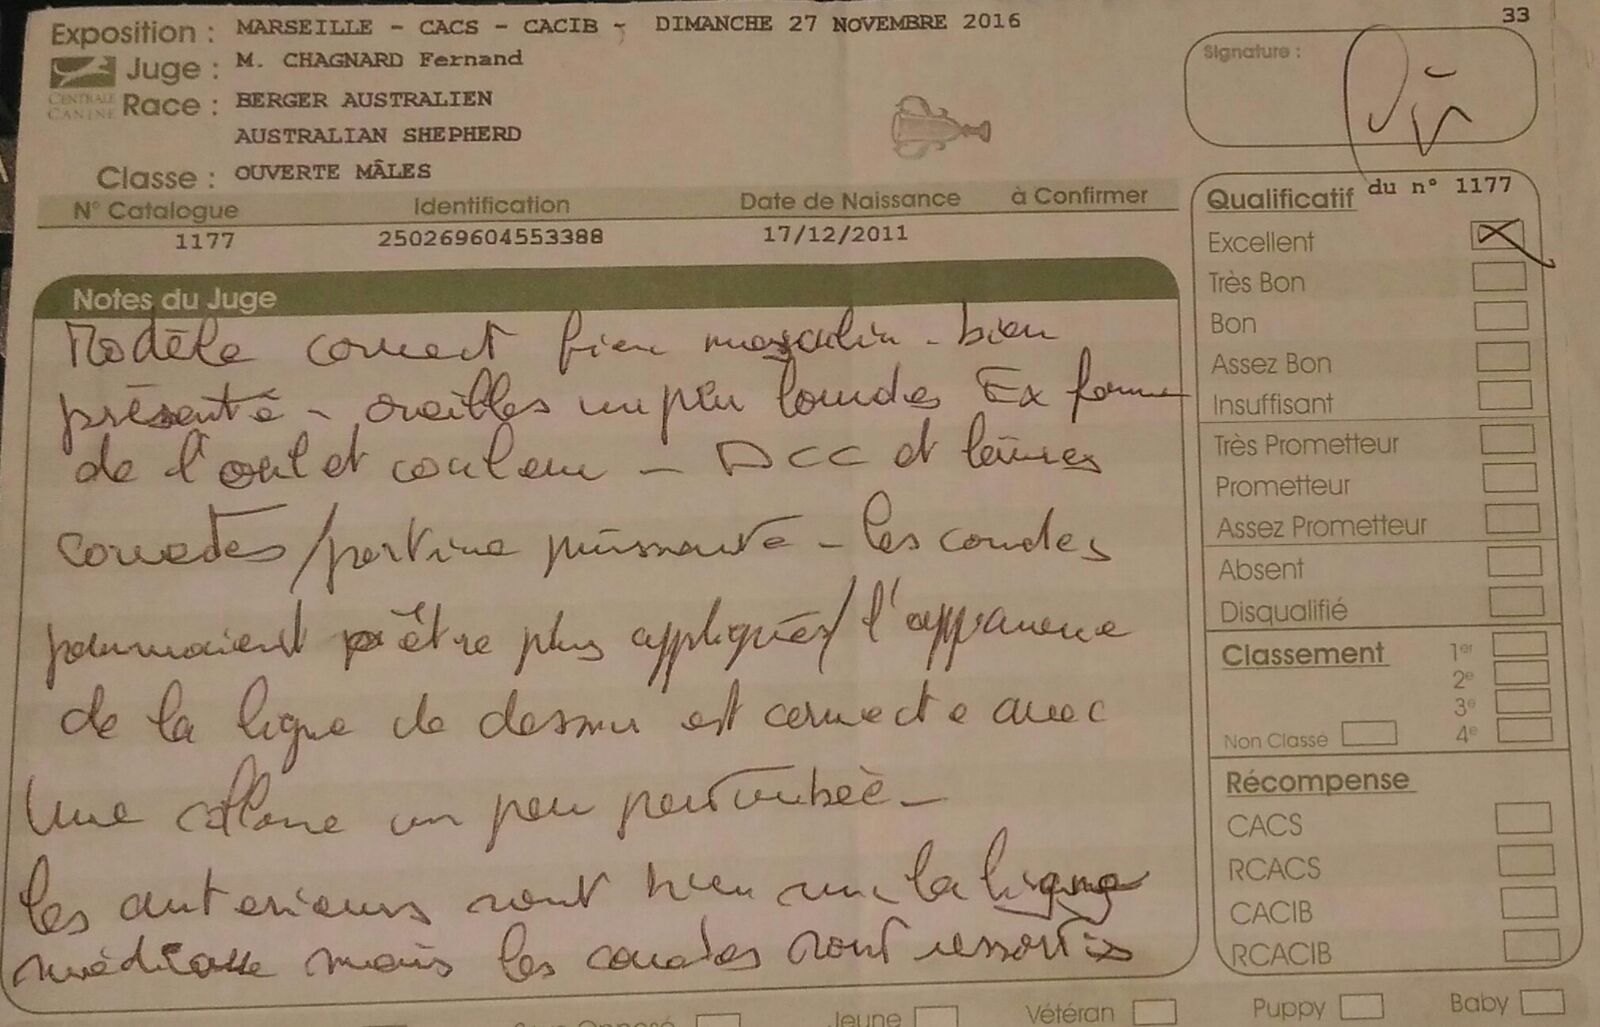 33
Exposition : MARSEILLE - CACS - CACIB - DIMANCHE 27 NOVEMBRE 2016
Juge : M. CHAGNARD Fernand
CENTRALE CANINE
Race : BERGER AUSTRALIEN
AUSTRALIAN SHEPHERD
Classe : OUVERTE MÂLES
N° Catalogue Identification Date de Naissance à Confirmer
1177 250269604553388 17/12/2011
Notes du Juge
Modèle correct bien masculin - bien
présenté - oreilles un peu lourdes Ex forme
de l'oeil et couleur - DCC et lèvres
correctes / poitrine puissante - les coudes
pourraient être plus appliqués / l'apparence
de la ligne de dessus est correcte avec
une un peu perturbée -
les anterieurs sont bien sur la ligne
médiane mais les coudes sont ressortis
Signature :
Qualificatif du n° 1177
Excellent
Très Bon
Bon
Assez Bon
Insuffisant
Très Prometteur
Prometteur
Assez Prometteur
Absent
Disqualifié
Classement 1er
2e
3e
Non Classé 4e
Récompense
CACS
RCACS
CACIB
RCACIB
Sexe Opposé Jeune Vétéran Puppy Baby